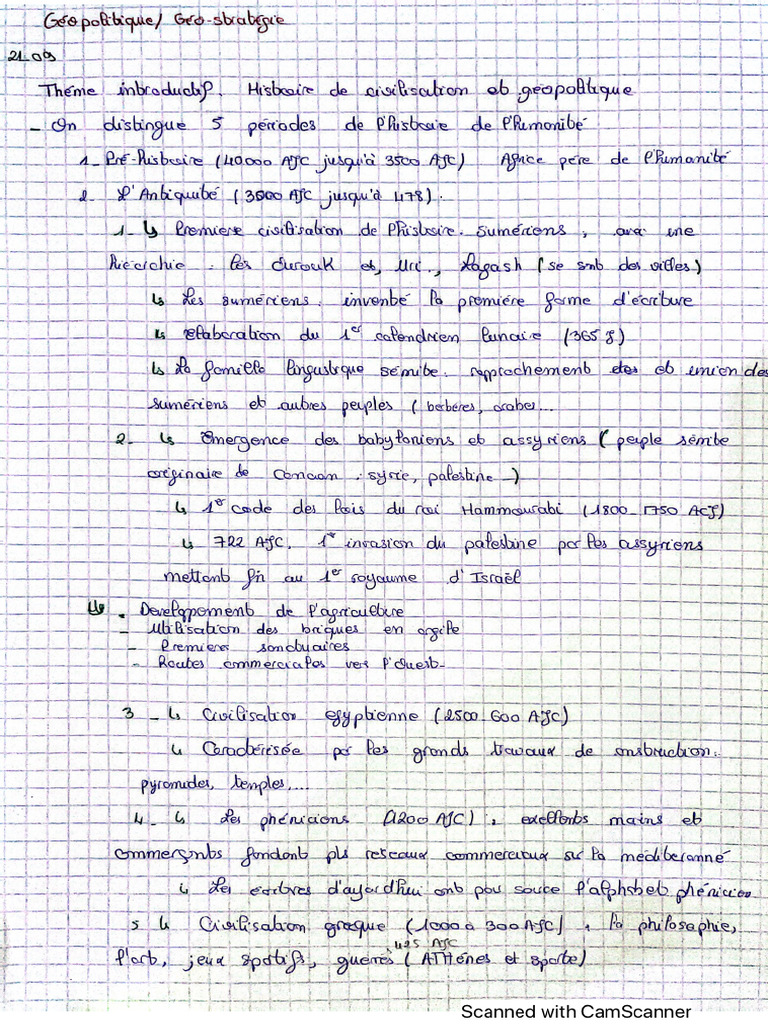 Géopolitique/ Géo-stratégie
21.09
Thème introductif. Histoire de civilisation et géopolitique
- On distingue 5 périodes de l'histoire de l'humanité
1- Pré-histoire (40000 AJC jusqu'à 3500 AJC) Africe père de l'humanité
2- L'Antiquité (3500 AJC jusqu'à 478).
1- ↳ Première civilisation de l'histoire. sumériens, avec une
hiérarchie : les ourouk et, Uri., Lagash (se snt des villes)
↳ Les sumériens. inventé la première forme d'écriture
↳ élaboration du 1er calendrien lunaire (365 J)
↳ La famille lingustique sémite. rapprochement et union des
sumériens et autres peuples (berbères, arabes...
2- ↳ Emergence des babyloniens et assyriens (peuple sémite
originaire de Canaan : syrie, palestine -)
↳ 1er code des lois du roi Hammourabi (1800-1750 ACJ)
↳ 722 AJC. 1er invasion du palestine par les assyriens
mettant fin au 1er royaume d'Israël
↳ . Développement de l'agriculture
- Utilisation des briques en argile
- Premiers sanctuaires
- Routes commerciales vers l'ouest-
3 - ↳ Civilisation egyptienne (2500-600 AJC)
↳ Caractérisée par les grands travaux de construction.
pyramides, temples,...
4- ↳ Les phéniciens (1200 AJC), excellents mains et
commerçants fondant pls réseaux commerciaux sur la méditeranné
↳ Les écritures d'aujordh'ui ont pour source l'alphabet phénicien
5 ↳ Civilisation grecque (1000 à 300 AJC), la philosophie,
425 AJC
l'art, jeux spotifs, guerres (ATHénes et sparte)
Scanned with CamScanner